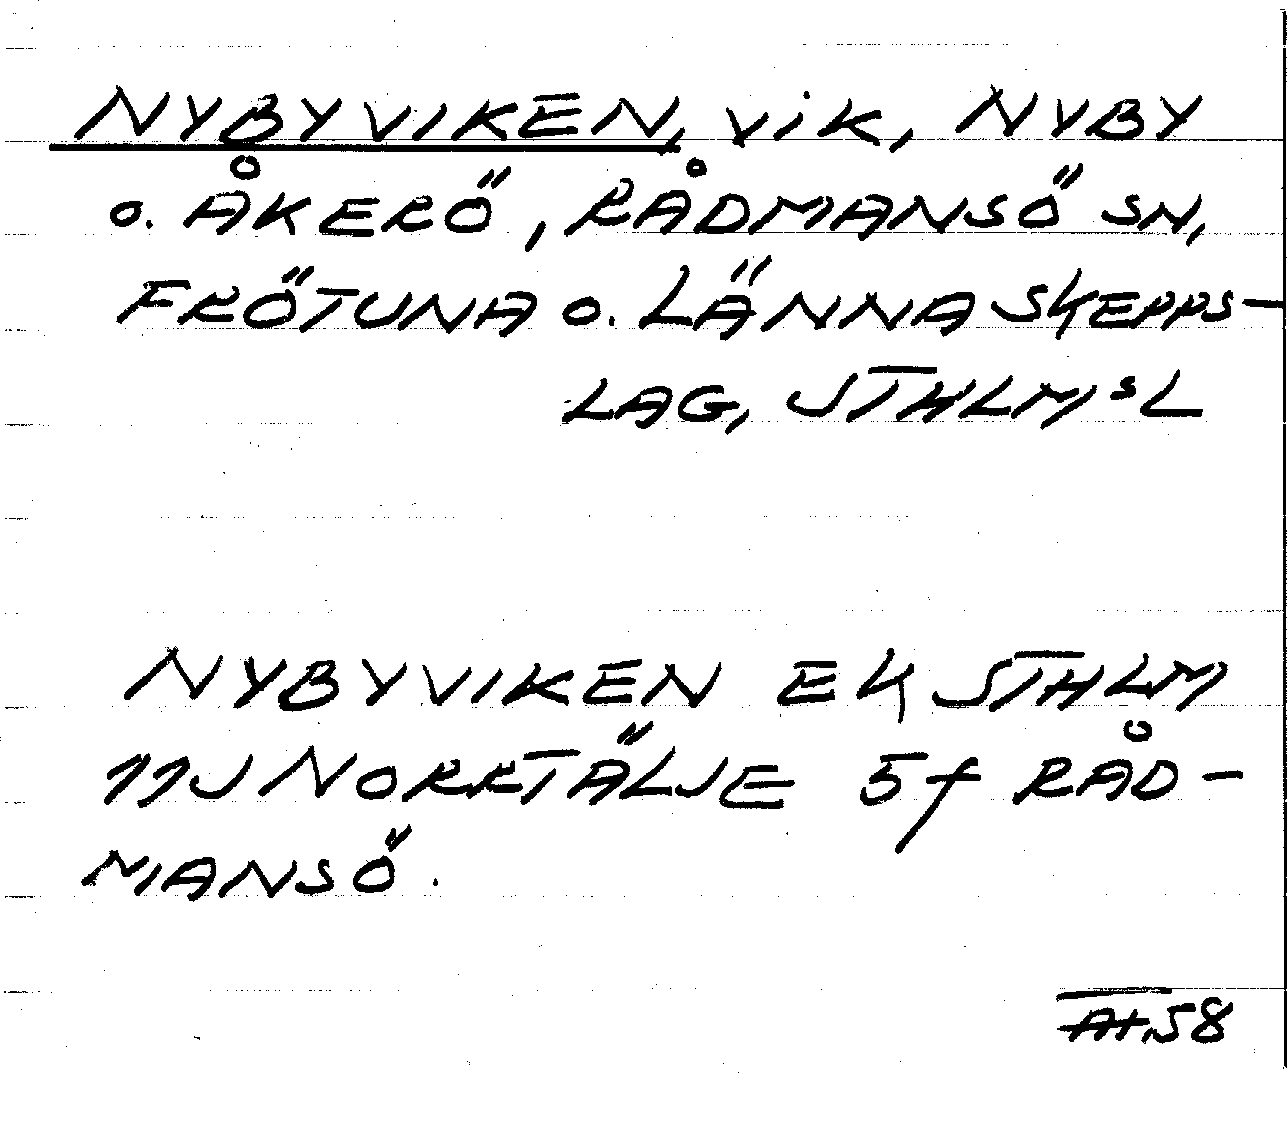 NYBYVIKEN, vik, NYBY
o. ÅKERÖ, RÅDMANSÖ SN,
FRÖTUNA o. LÄNNA SKEPPS-
LAG, STHLMS L
NYBYVIKEN EK STHLM
11J NORRTÄLJE 5f RÅD-
MANSÖ.
58